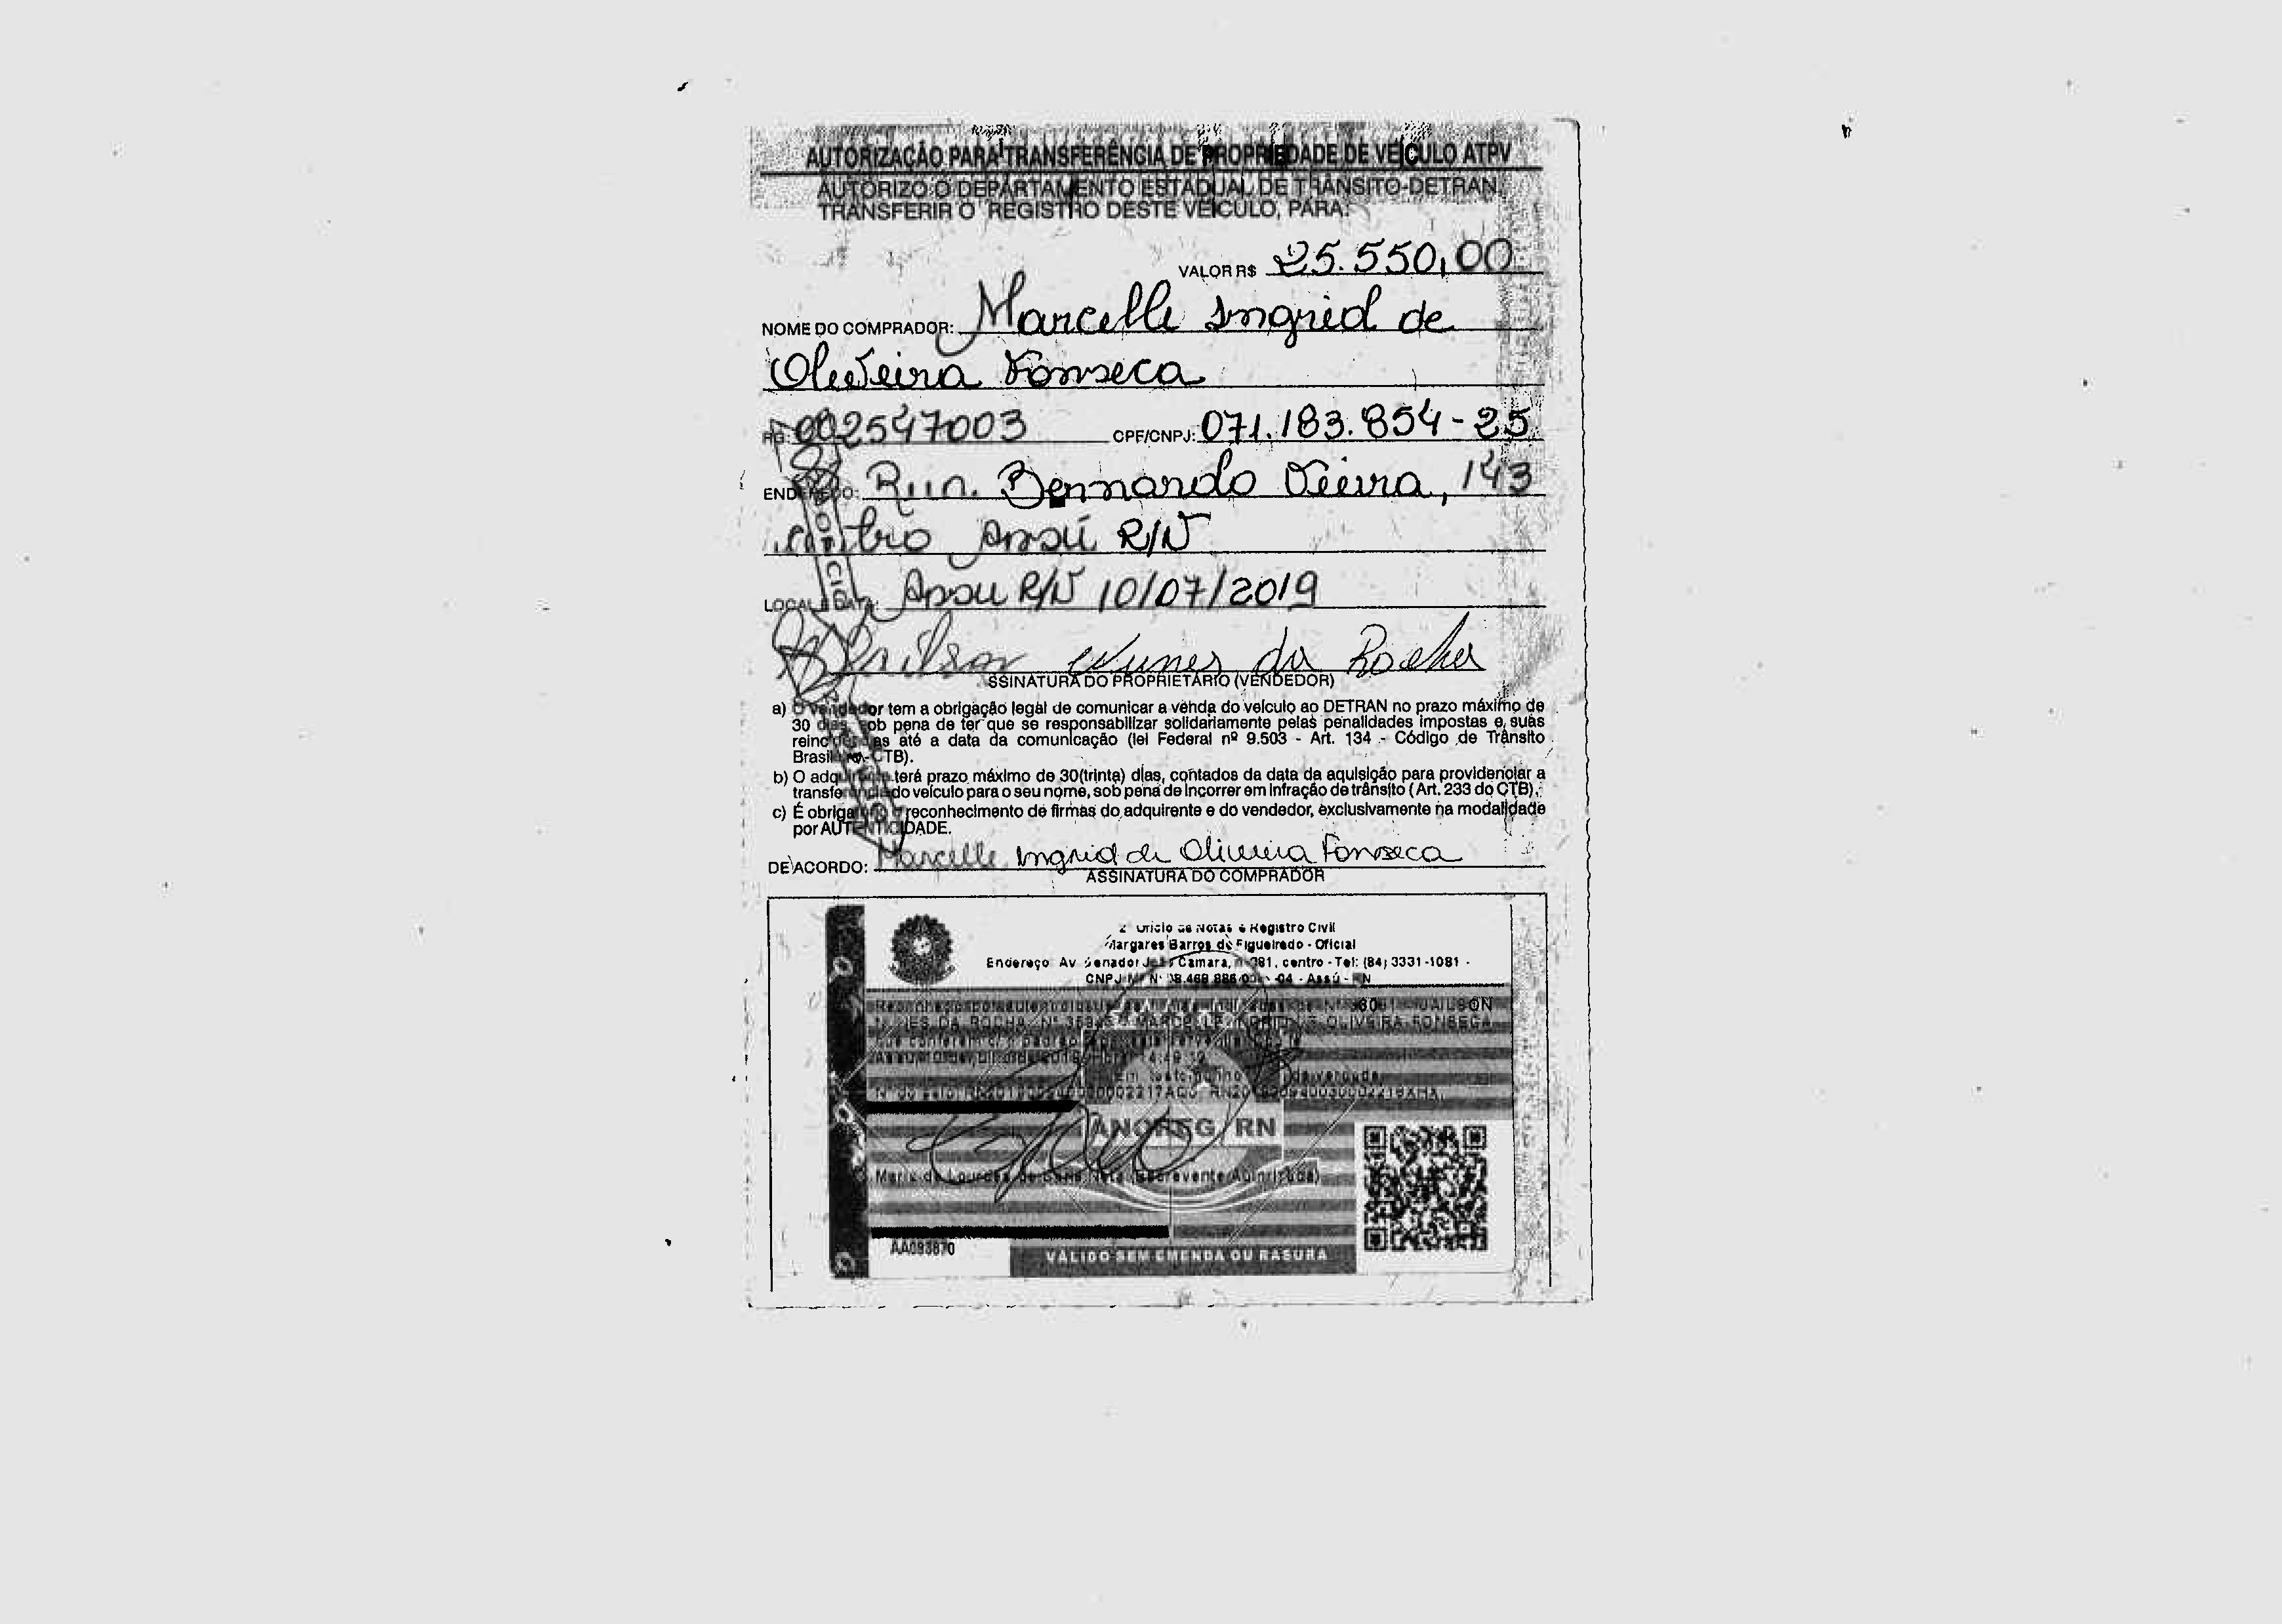 AUTORIZAÇÃO PARA TRANSFERÊNCIA DE PROPRIEDADE DE VEÍCULO ATPV
AUTORIZO O DEPARTAMENTO ESTADUAL DE TRÂNSITO-DETRAN,
TRANSFERIR O REGISTRO DESTE VEÍCULO, PARA:
VALOR R$ 25.550,00
NOME DO COMPRADOR: Marcelle Ingrid de
Oliveira Fonseca
RG: 002547003 CPF/CNPJ: 071.183.854-25
ENDEREÇO: Rua. Bernardo Vieira, 143
centro Assú R/N
LOCAL E DATA: Assu R/N 10/07/2019
Jailson Nunes da Rocha
ASSINATURA DO PROPRIETÁRIO (VENDEDOR)
a) O vendedor tem a obrigação legal de comunicar a venda do veículo ao DETRAN no prazo máximo de
30 dias, sob pena de ter que se responsabilizar solidariamente pelas penalidades impostas e suas
reincidências até a data da comunicação (lei Federal nº 9.503 - Art. 134 - Código de Trânsito
Brasileiro-CTB).
b) O adquirente terá prazo máximo de 30(trinta) dias, contados da data da aquisição para providenciar a
transferência do veículo para o seu nome, sob pena de incorrer em infração de trânsito (Art. 233 do CTB).
c) É obrigatório o reconhecimento de firmas do adquirente e do vendedor, exclusivamente na modalidade
por AUTENTICIDADE.
DE ACORDO: Marcelle Ingrid de Oliveira Fonseca
ASSINATURA DO COMPRADOR
2º Ofício de Notas e Registro Civil
Margares Barros de Figueiredo - Oficial
Endereço Av Senador João Camara, centro - Tel: (84) 3331-1081 -
Assú - RN
JAILSON
NUNES DA ROCHA OLIVEIRA FONSECA
que conferem c/ o padrão
Em testemunho da verdade
ANOREG/RN
Maria de Lourdes (Escrevente Autorizada)
AA093870
VÁLIDO SEM EMENDA OU RASURA